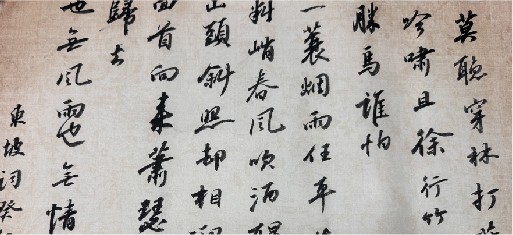 莫聽穿林打葉
吟嘯且徐行竹
勝馬誰怕
一蓑烟雨任平
料峭春風吹酒醒
山頭斜照却相
回首向来蕭瑟
歸去
也無風雨也無情
東坡詞癸